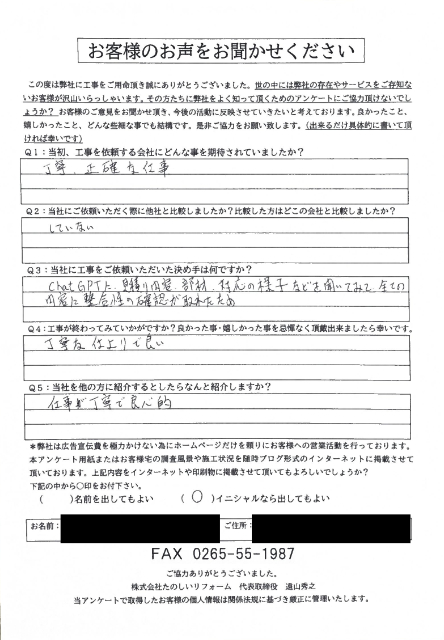 お客様のお声をお聞かせください
この度は弊社に工事をご用命頂き誠にありがとうございました。世の中には弊社の存在やサービスをご存知な
いお客様が沢山いらっしゃいます。その方たちに弊社をよく知って頂くためのアンケートにご協力頂けないでし
ょうか？ お客様のご意見をお聞かせ頂き、今後の活動に反映させていきたいと考えております。良かったこと、
嬉しかったこと、どんな些細な事でも結構です。是非ご協力をお願い致します。（出来るだけ具体的に書いて頂
ければ幸いです）
Q1：当初、工事を依頼する会社にどんな事を期待されていましたか？
丁寧、正確な仕事
Q2：当社にご依頼いただく際に他社と比較しましたか？比較した方はどこの会社と比較しましたか？
していない
Q3：当社に工事をご依頼いただいた決め手は何ですか？
ChatGPTに、見積り内容、部材、対応の様子などを聞いてみて、全ての
内容に整合性の確認が取れたため
Q4：工事が終わってみていかがですか？良かった事・嬉しかった事を忌憚なく頂戴出来ましたら幸いです。
丁寧な仕上りで良い
Q5：当社を他の方に紹介するとしたらなんと紹介しますか？
仕事が丁寧で良心的
＊弊社は広告宣伝費を極力かけない為にホームページだけを頼りにお客様への営業活動を行っております。
本アンケート用紙またはお客様宅の調査風景や施工状況を随時ブログ形式のインターネットに掲載させて
頂いております。上記内容をインターネットや印刷物に掲載させて頂いてもよろしいでしょうか？
下記の中から○印をお付下さい。
（　）名前を出してもよい　（ ○ ）イニシャルなら出してもよい
お名前：　ご住所：
FAX 0265-55-1987
ご協力ありがとうございました。
株式会社たのしいリフォーム　代表取締役　遠山秀之
当アンケートで取得したお客様の個人情報は関係法規に基づき厳正に管理いたします。